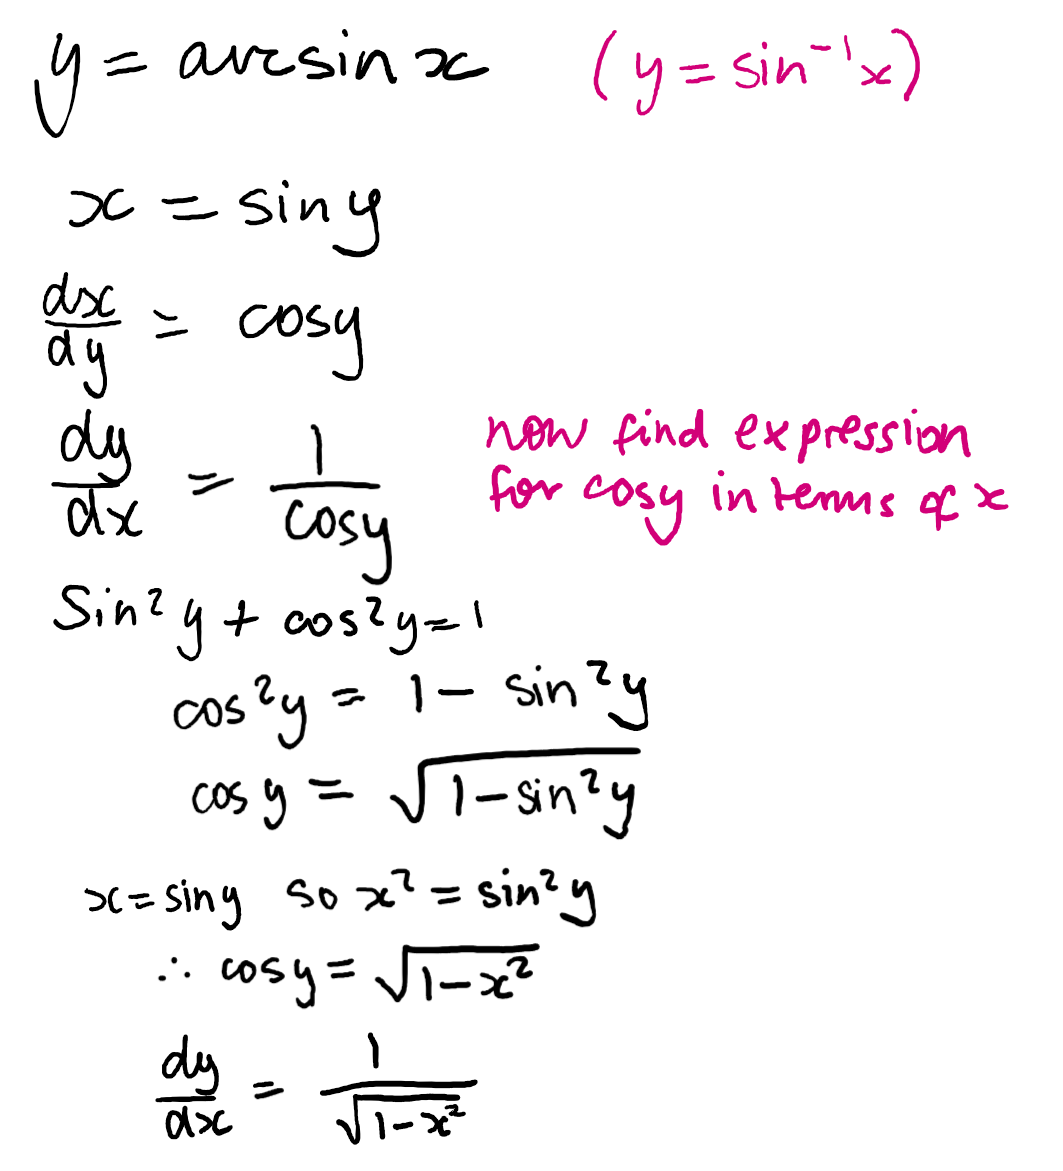 y = arcsin x (y = sin⁻¹x)
x = sin y
dx/dy = cosy
dy/dx = 1/cosy
now find expression
for cosy in terms of x
Sin²y + cos²y = 1
cos²y = 1 - sin²y
cos y = √(1-sin²y)
x = sin y so x² = sin²y
∴ cosy = √(1-x²)
dy/dx = 1/√(1-x²)